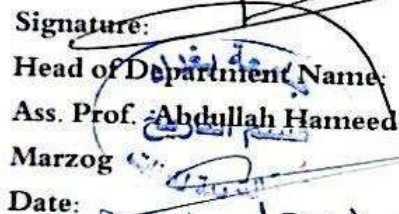 Signature:
Head of Department Name:
Ass. Prof. Abdullah Hameed
Marzog
Date: